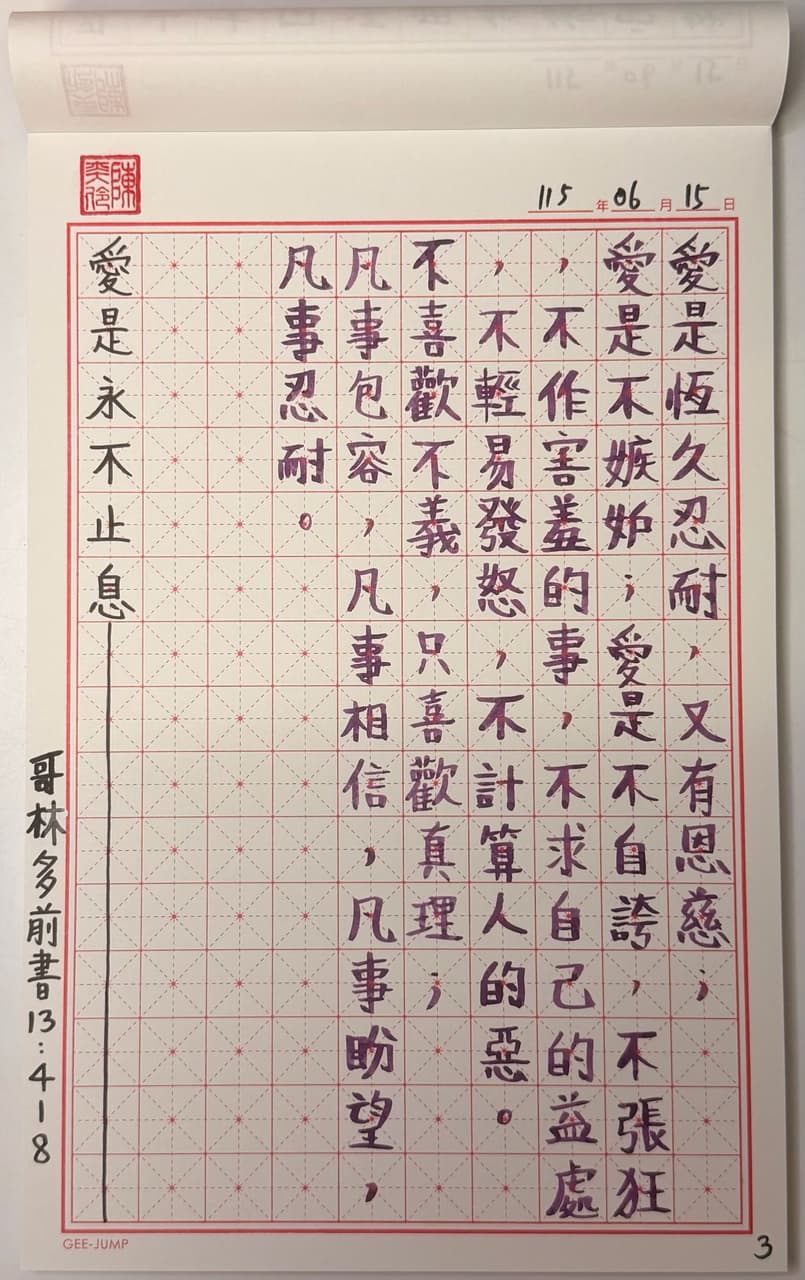 115年06月15日
愛是恆久忍耐，又有恩慈；
愛是不嫉妒；愛是不自誇，不張狂
，不作害羞的事，不求自己的益處
，不輕易發怒，不計算人的惡。
不喜歡不義，只喜歡真理；
凡事包容，凡事相信，凡事盼望，
凡事忍耐。
愛是永不止息
哥林多前書13:4-8
GEE-JUMP
3